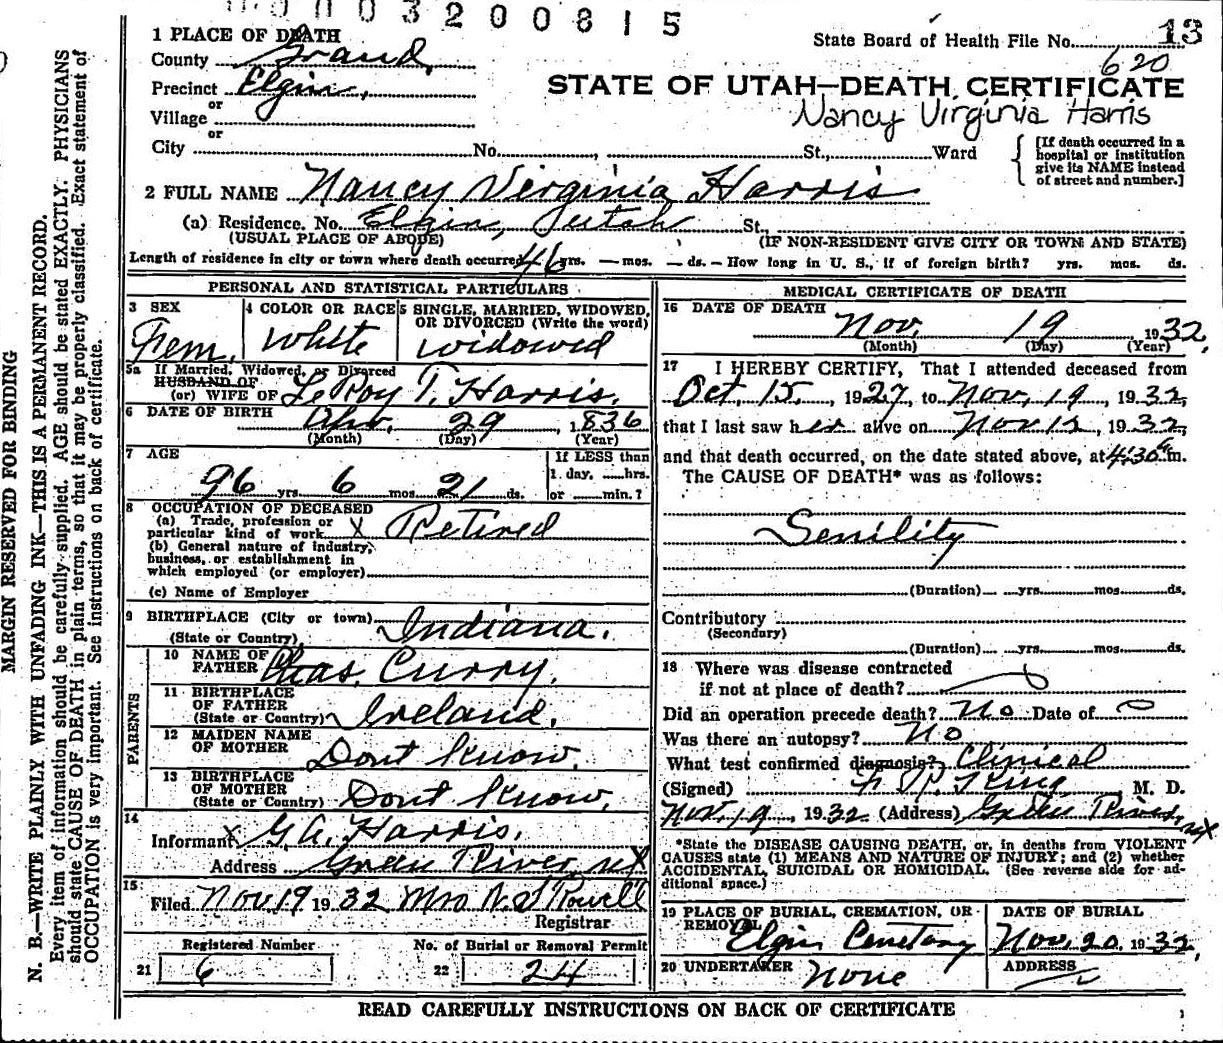 0 0 0 3 2 0 0 8 1 5
13
State Board of Health File No.
620
1 PLACE OF DEATH
County Grand,
Precinct Elgin,
or
Village
or
City No. , St., Ward
STATE OF UTAH—DEATH CERTIFICATE
Nancy Virginia Harris
[If death occurred in a
hospital or institution
give its NAME instead
of street and number.]
2 FULL NAME Nancy Virginia Harris
(a) Residence. No. Elgin, Utah St.
(USUAL PLACE OF ABODE) (IF NON-RESIDENT GIVE CITY OR TOWN AND STATE)
Length of residence in city or town where death occurred 46 yrs. — mos. — ds. — How long in U. S., if of foreign birth? yrs. mos. ds.
PERSONAL AND STATISTICAL PARTICULARS
3 SEX
Fem.
4 COLOR OR RACE
White
5 SINGLE, MARRIED, WIDOWED,
OR DIVORCED (Write the word)
widowed
5a If Married, Widowed, or Divorced
HUSBAND OF
(or) WIFE OF LeRoy T. Harris.
6 DATE OF BIRTH Apr. 29, 1836
(Month) (Day) (Year)
7 AGE
96 yrs 6 mos. 21 ds.
If LESS than
1 day, ......hrs.
or ......min.?
8 OCCUPATION OF DECEASED
(a) Trade, profession or
particular kind of work X Retired
(b) General nature of industry,
business, or establishment in
which employed (or employer)
(c) Name of Employer
9 BIRTHPLACE (City or town)
(State or Country) Indiana.
PARENTS
10 NAME OF
FATHER Chas. Curry.
11 BIRTHPLACE
OF FATHER
(State or Country) Ireland.
12 MAIDEN NAME
OF MOTHER Dont Know.
13 BIRTHPLACE
OF MOTHER
(State or Country) Dont Know.
14
Informant X G. A. Harris.
Address Green River, utX
15
Filed Nov. 19 1932 Mrs N. S. Powell
Registrar
Registered Number No. of Burial or Removal Permit
21 6 22 24
MEDICAL CERTIFICATE OF DEATH
16 DATE OF DEATH
Nov. 19, 1932,
(Month) (Day) (Year)
17 I HEREBY CERTIFY, That I attended deceased from
Oct. 15., 1927, to Nov. 19, 1932,
that I last saw her alive on Nov 12, 1932,
and that death occurred, on the date stated above, at 4:30 a m.
The CAUSE OF DEATH* was as follows:
Senility
(Duration) yrs. mos. ds.
Contributory
(Secondary)
(Duration) yrs. mos. ds.
18 Where was disease contracted
if not at place of death?
Did an operation precede death? No Date of 0
Was there an autopsy? No
What test confirmed diagnosis? Clinical
(Signed) King, M. D.
Nov. 19, 1932 (Address) Green River, utX
*State the DISEASE CAUSING DEATH, or, in deaths from VIOLENT
CAUSES state (1) MEANS AND NATURE OF INJURY; and (2) whether
ACCIDENTAL, SUICIDAL OR HOMICIDAL. (See reverse side for ad-
ditional space.)
19 PLACE OF BURIAL, CREMATION, OR
REMOVAL
Elgin Cemetary
DATE OF BURIAL
Nov. 20, 1932,
20 UNDERTAKER None
ADDRESS
READ CAREFULLY INSTRUCTIONS ON BACK OF CERTIFICATE
MARGIN RESERVED FOR BINDING
N. B.—WRITE PLAINLY WITH UNFADING INK—THIS IS A PERMANENT RECORD.
Every item of information should be carefully supplied. AGE should be stated EXACTLY. PHYSICIANS
should state CAUSE OF DEATH in plain terms, so that it may be properly classified. Exact statement of
OCCUPATION is very important. See instructions on back of certificate.